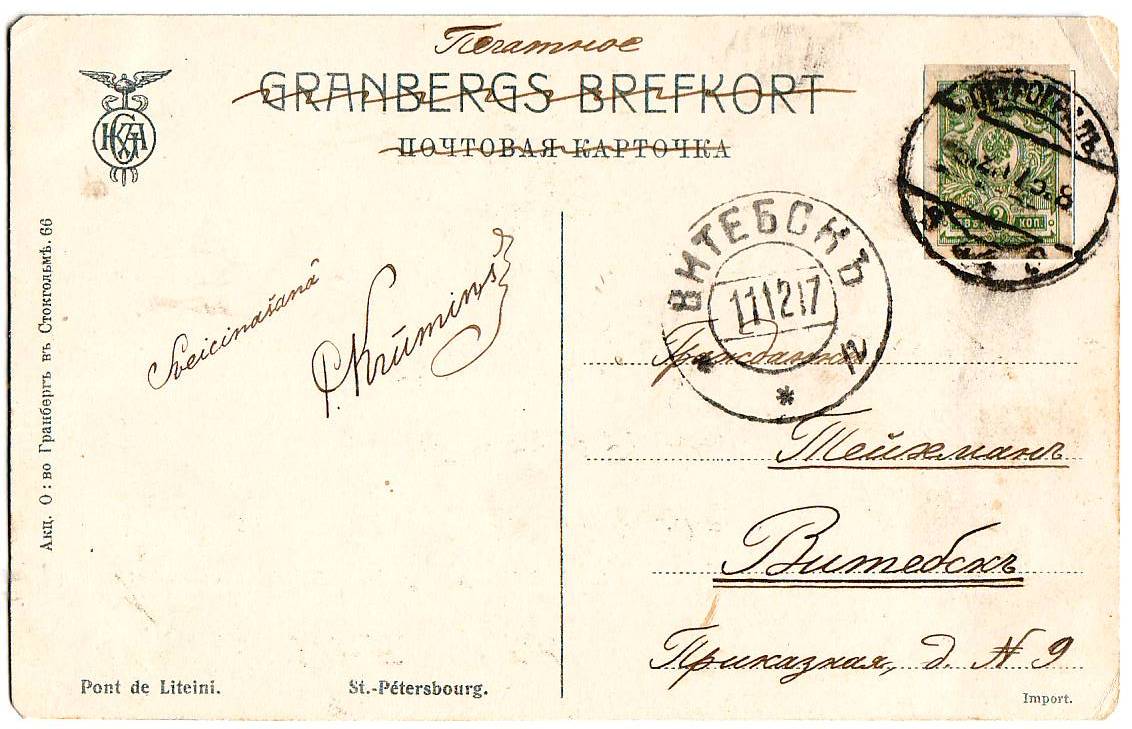 Печатное
GRANBERGS BREFKORT
ПОЧТОВАЯ КАРТОЧКА
Акц. О: во Гранбергъ въ Стокгольмѣ. 66
Sveicinašanā
P. Krūmiņš
ВИТЕБСКЪ
111217
ПЕТРОГРАДЪ
2 КОП.
Гражданкѣ
Тейхманъ
Витебскъ
Приказная, д. N 9
Pont de Liteini.
St.-Pétersbourg.
Import.